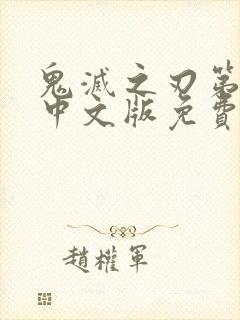 鬼滅之刃第
中文版免費
趙權軍